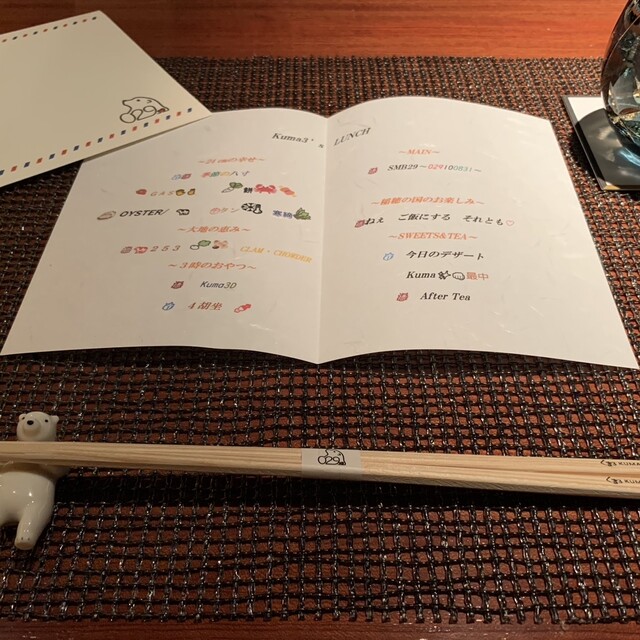 Kuma3's LUNCH
~21㎝の幸せ~
季節の八寸
GAS 餅
OYSTER/ タン 寒鰆
~大地の恵み~
253 CLAM・CHOWDER
~3時のおやつ~
Kuma3D
4胡坐
~MAIN~
SMB29~029100831~
~瑞穂の国のお楽しみ~
ねぇ ご飯にする それとも♡
~SWEETS&TEA~
今日のデザート
Kuma 最中
After Tea
029
029